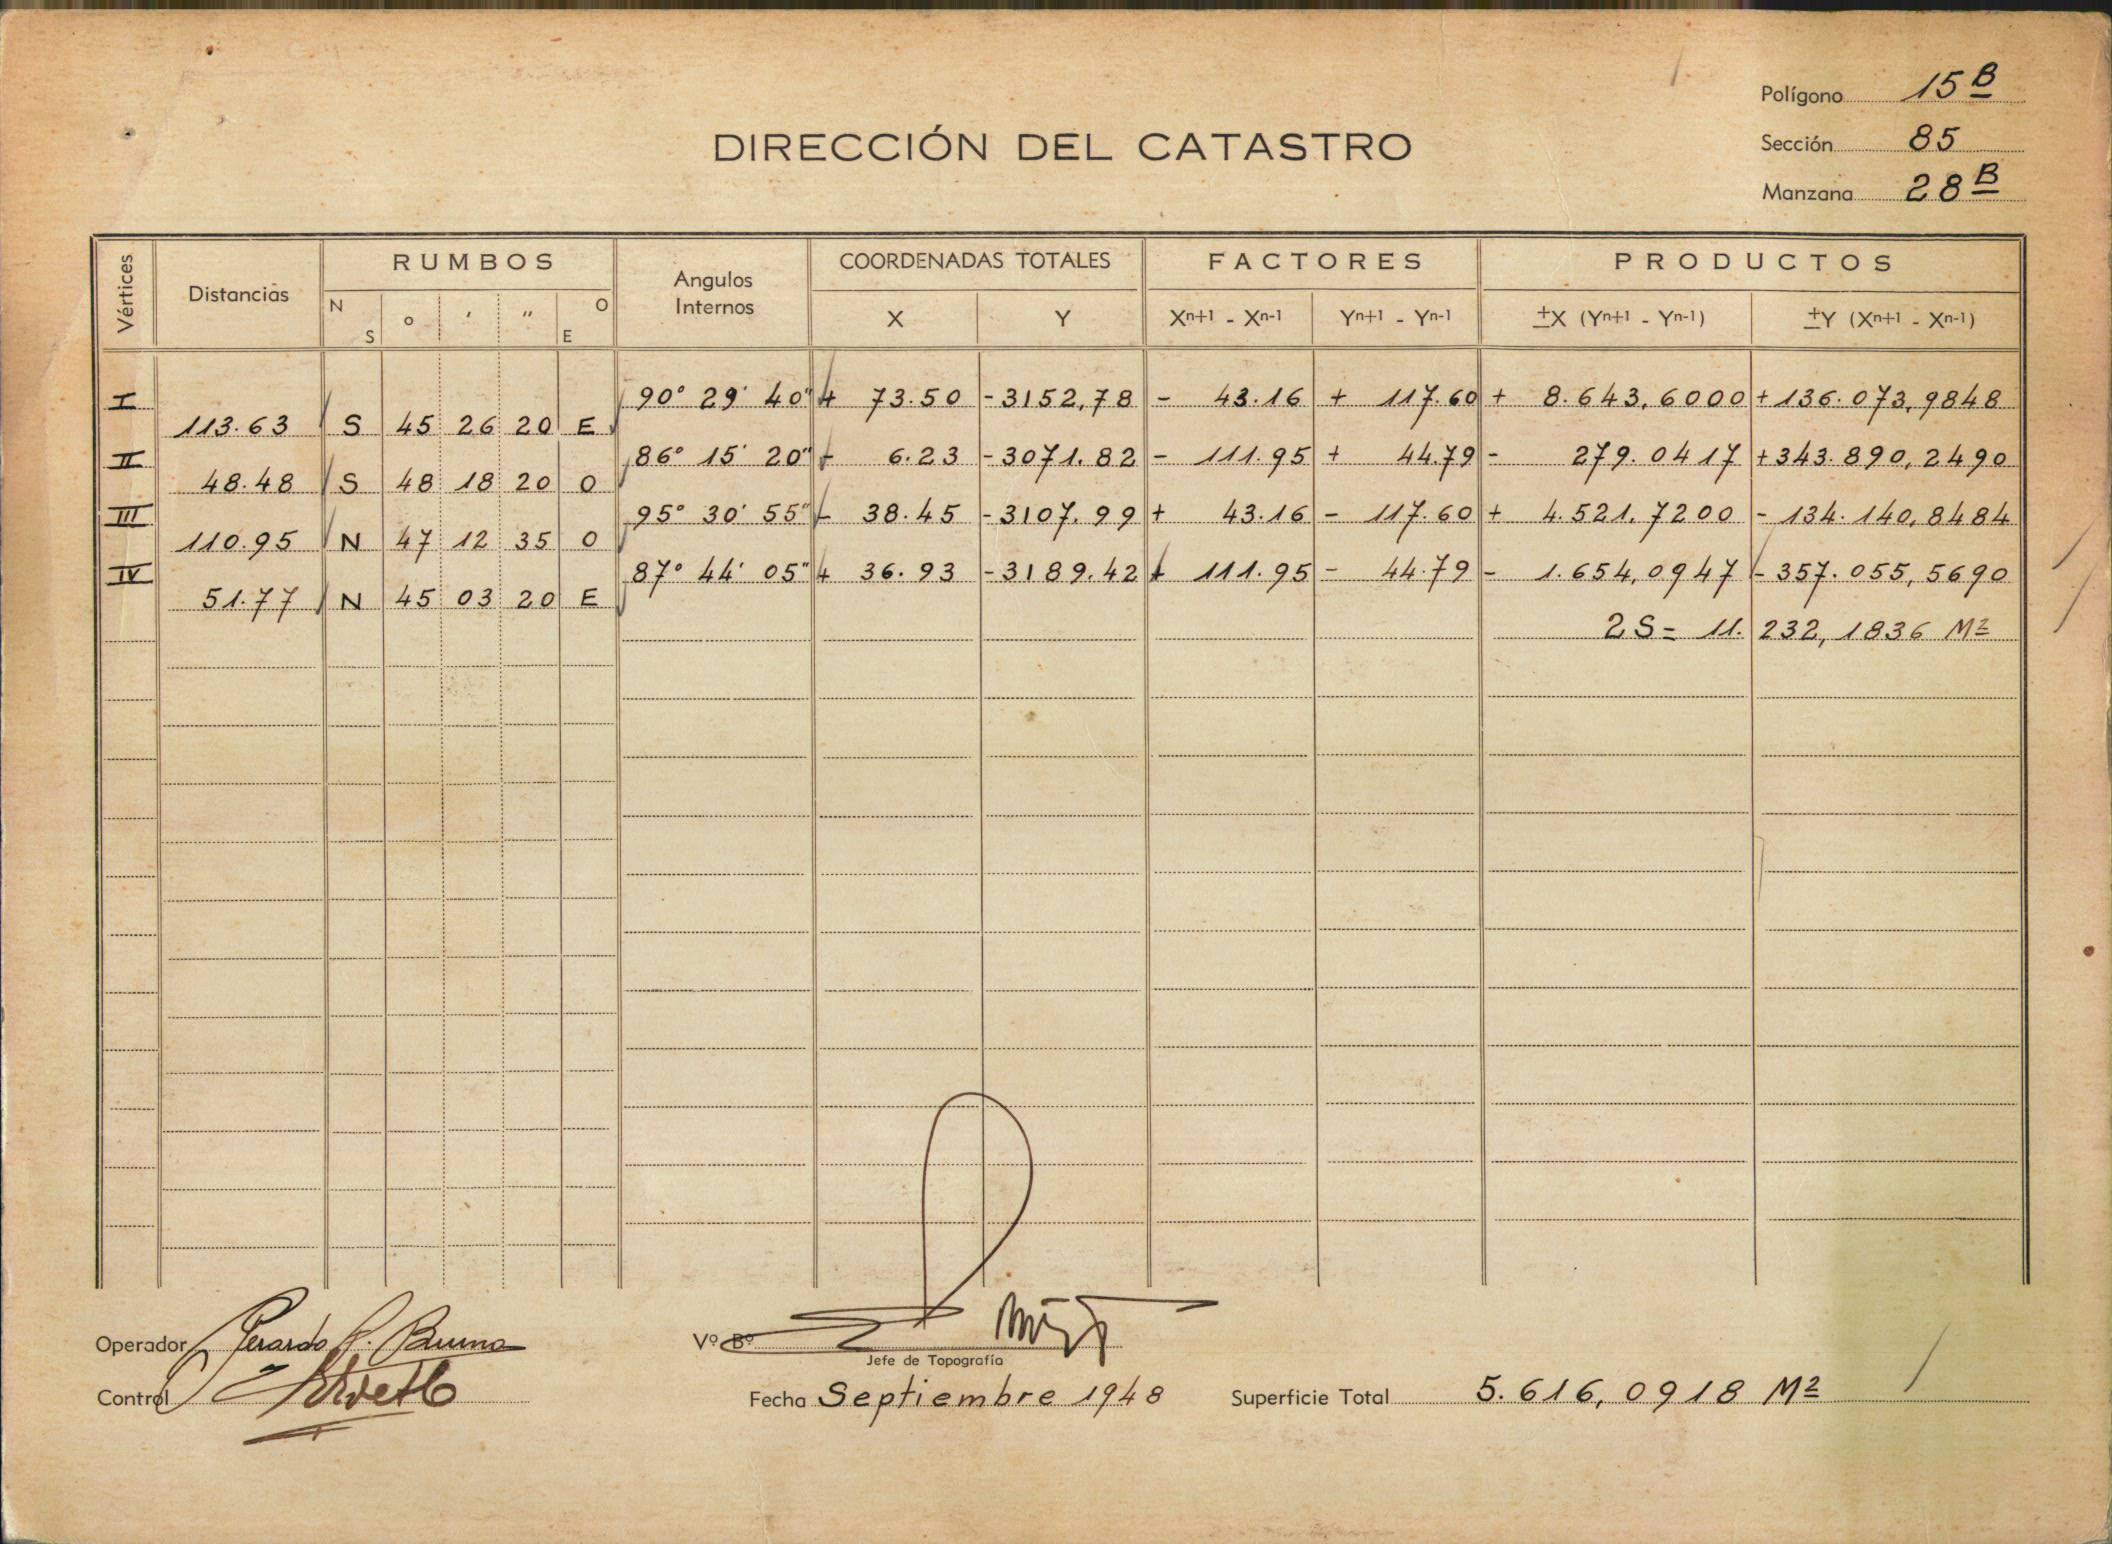 Polígono 15 B
DIRECCIÓN DEL CATASTRO
Sección 85
Manzana 28 B
Vértices Distancias RUMBOS Angulos Internos COORDENADAS TOTALES FACTORES PRODUCTOS
N S ° ′ ″ O E X Y Xn+1 - Xn-1 Yn+1 - Yn-1 ±X (Yn+1 - Yn-1) ±Y (Xn+1 - Xn-1)
I 90° 29' 40" + 73.50 -3152,78 - 43.16 + 117.60 + 8.643,6000 +136.073,9848
113.63 S 45 26 20 E
II 86° 15' 20" - 6.23 -3071.82 - 111.95 + 44.79 - 279.0417 +343.890,2490
48.48 S 48 18 20 O
III 95° 30' 55" - 38.45 -3107.99 + 43.16 - 117.60 + 4.521,7200 - 134.140,8484
110.95 N 47 12 35 O
IV 87° 44' 05" + 36.93 -3189.42 + 111.95 - 44.79 - 1.654,0947 - 357.055,5690
51.77 N 45 03 20 E
2S = 11.232,1836 M²
Operador Gerardo Bruno
Vº Bº
Jefe de Topografía
Control
Fecha Septiembre 1948 Superficie Total 5.616,0918 M²